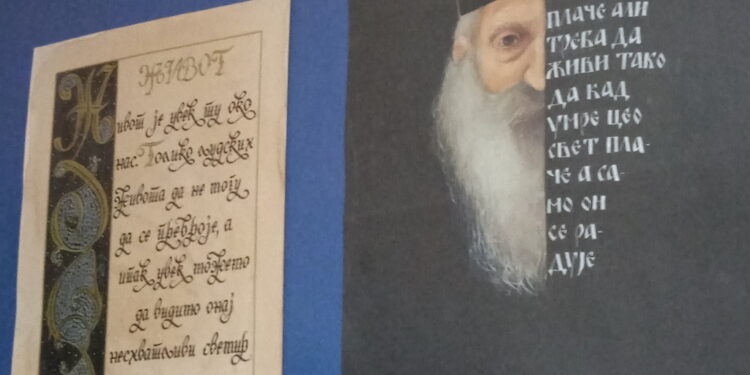 ЖИВОТ
Живот је увек ту око
нас. Толико људских
живота да не могу
да се преброје, а
ипак увек можемо
да видимо онај
несхватљиви свемир
ПЛАЧЕ АЛИ
ТРЕБА ДА
ЖИВИ ТАКО
ДА КАД
УМРЕ ЦЕО
СВЕТ ПЛА-
ЧЕ А СА-
МО ОН
СЕ РА-
ДУЈЕ